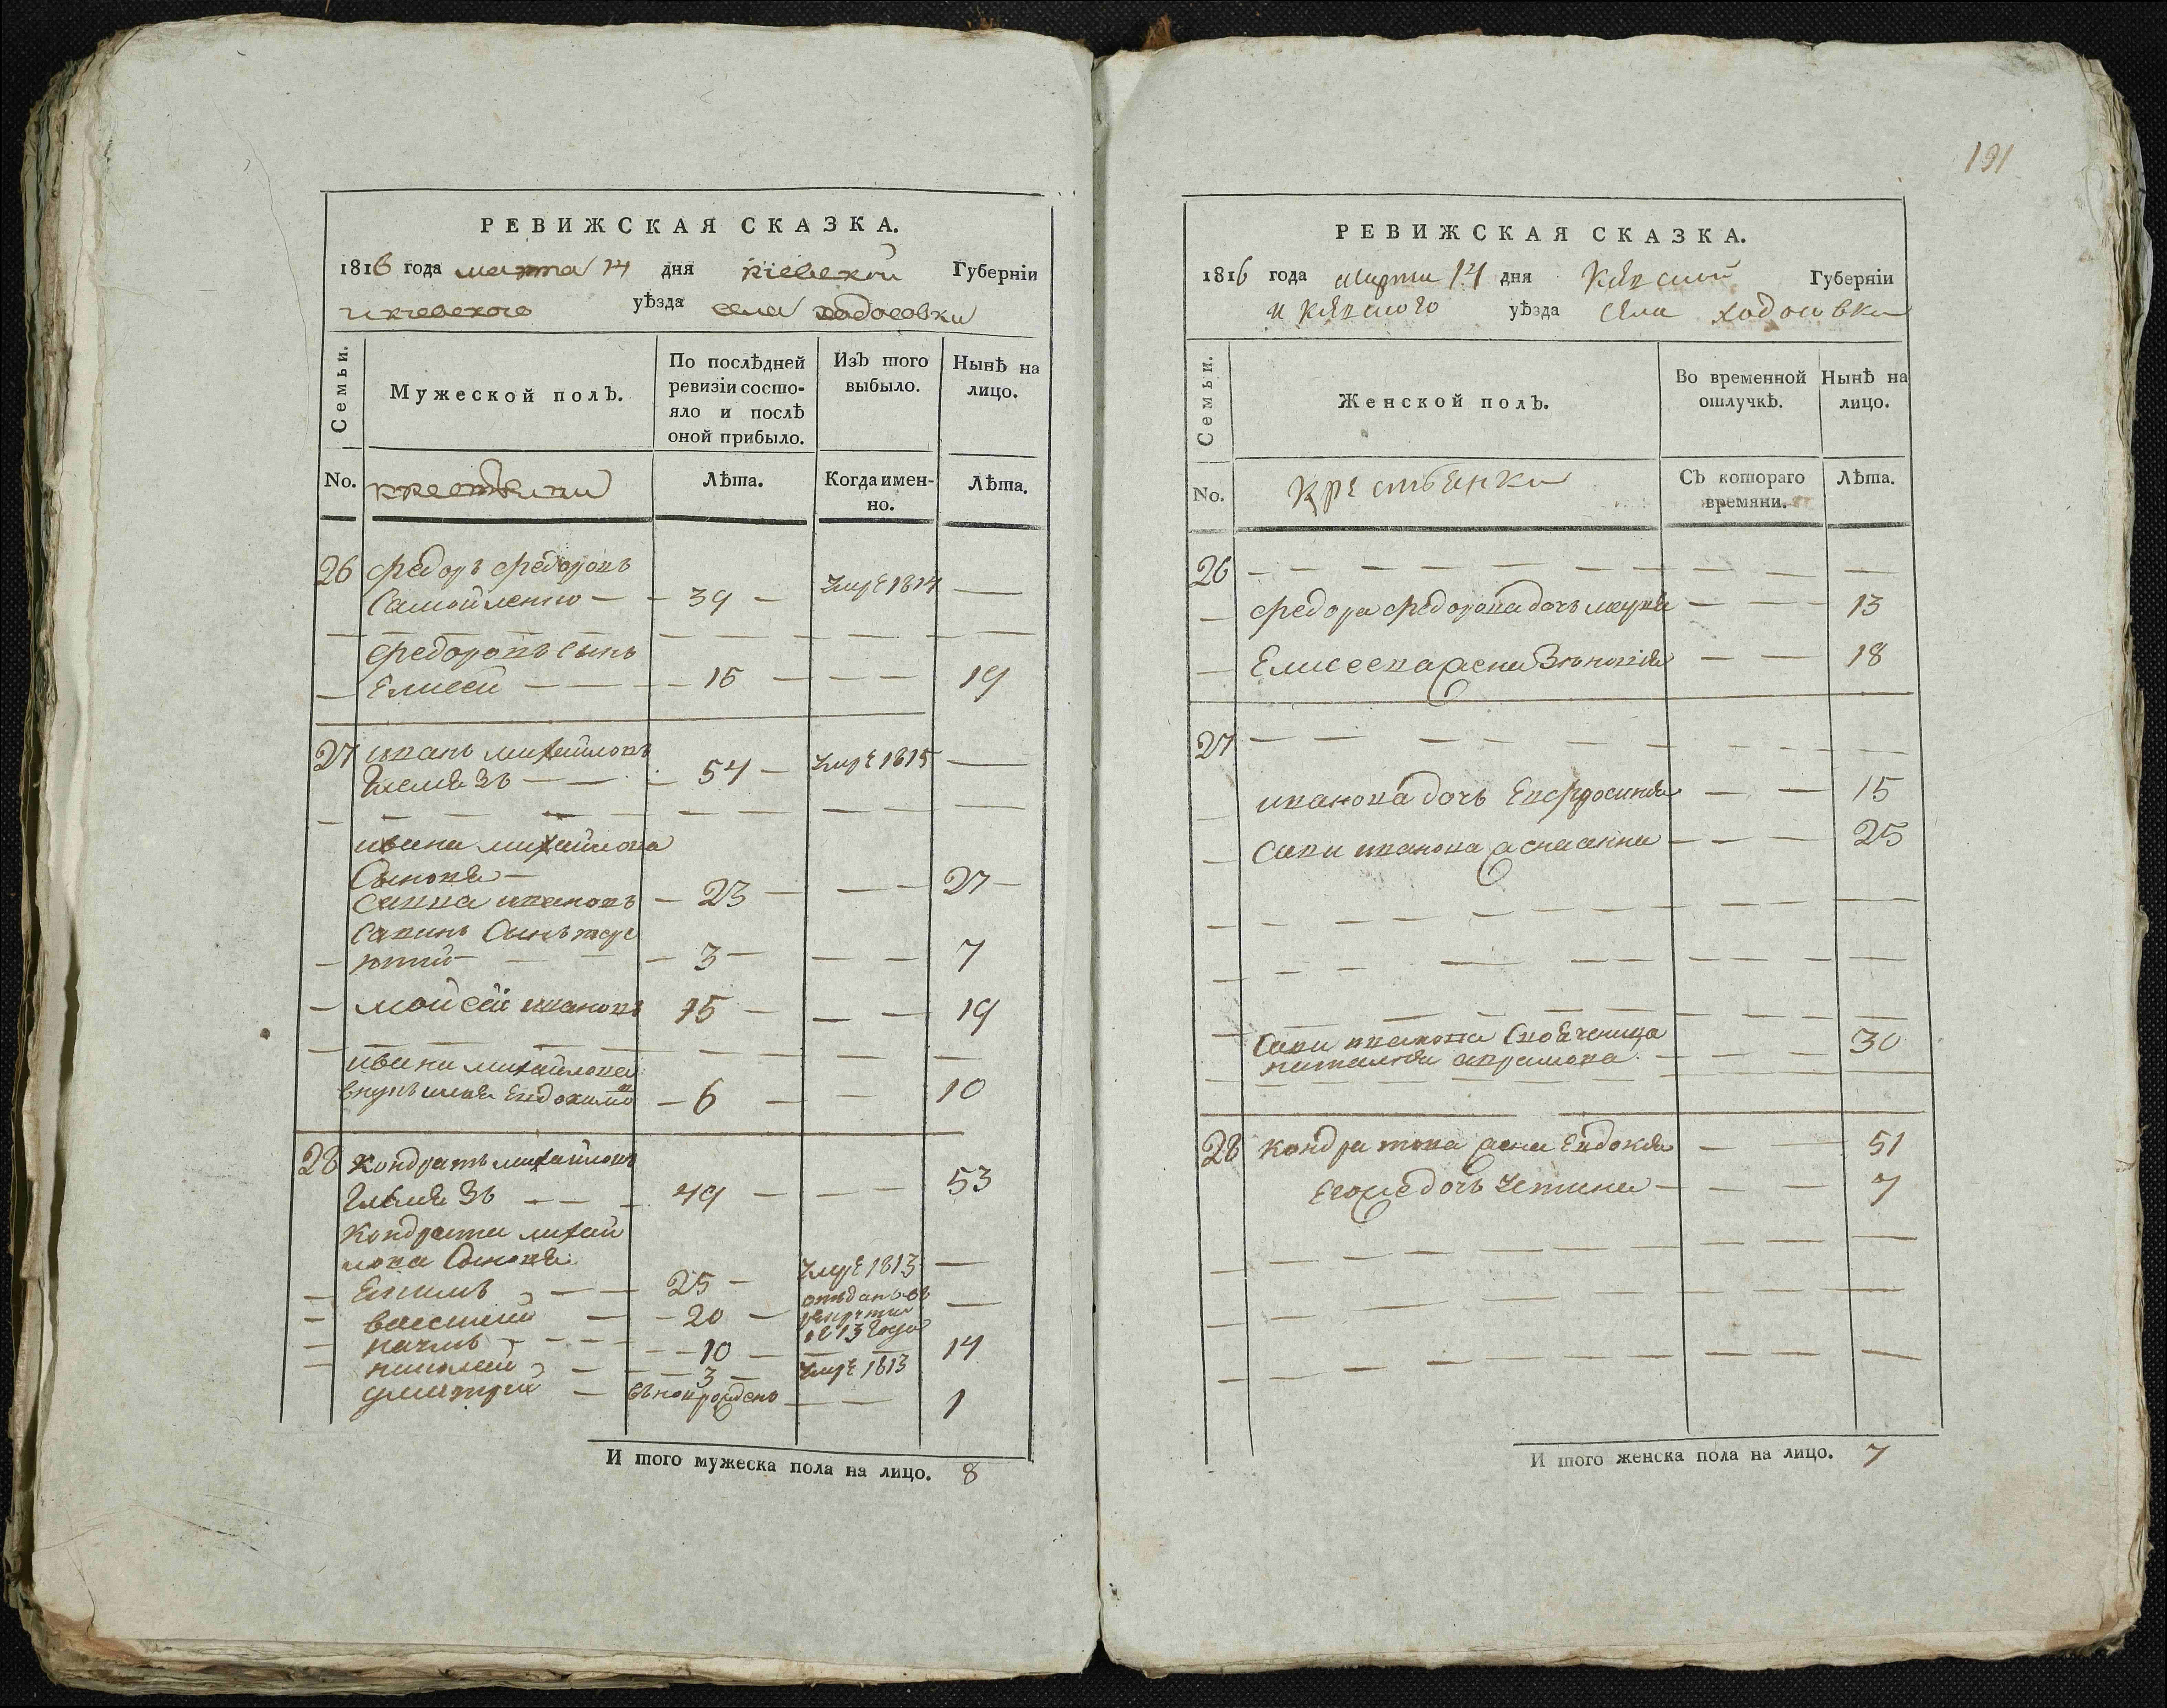 РЕВИЖСКАЯ СКАЗКА.
1816 года марта 14 дня киевской Губерніи
и киевского уѣзда села ходосовки
Семьи.
Мужеской полъ.
По послѣдней
ревизіи состо-
яло и послѣ
оной прибыло.
Изъ того
выбыло.
Нынѣ на
лицо.
No.
Лѣта.
Когда имен-
но.
Лѣта.
26 федоръ федоровъ
Самойленко 39 1814
федоровъ сынъ
Елисей 15 19
27 иванъ михайловъ
54 1815
ивана михайлова
Сыновя
савва ивановъ 23 27
савинъ Сынъ
3 7
мойсей ивановъ 15 19
ивана михайлова
внукъ илия 6 10
28 кондратъ михайловъ
49 53
кондрата михай
лова Сыновя
Екимъ 25 1813
василий 20 отданъ въ
рекруты
1813 года
10 14
николай 3 1813
дмитрий вновь рожденъ 1
И того мужеска пола на лицо. 8
191
РЕВИЖСКАЯ СКАЗКА.
1816 года марта 14 дня Киевской Губерніи
и Киевского уѣзда села ходосовки
Семьи.
Женской полъ.
Во временной
отлучкѣ.
Нынѣ на
лицо.
No.
крестьянки
Съ котораго
времяни.
Лѣта.
26
федора федорова дочь 13
Елисеева жена 18
27
иванова дочь Евфросиния 15
савы иванова жена анна 25
савы иванова Свояченица
наталия аврамова 30
28 кондратова жена Евдокия 51
Егоже дочь 7
И того женска пола на лицо. 7